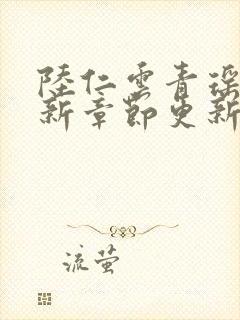 陸仁雲青瑤
新章節更新
流萤